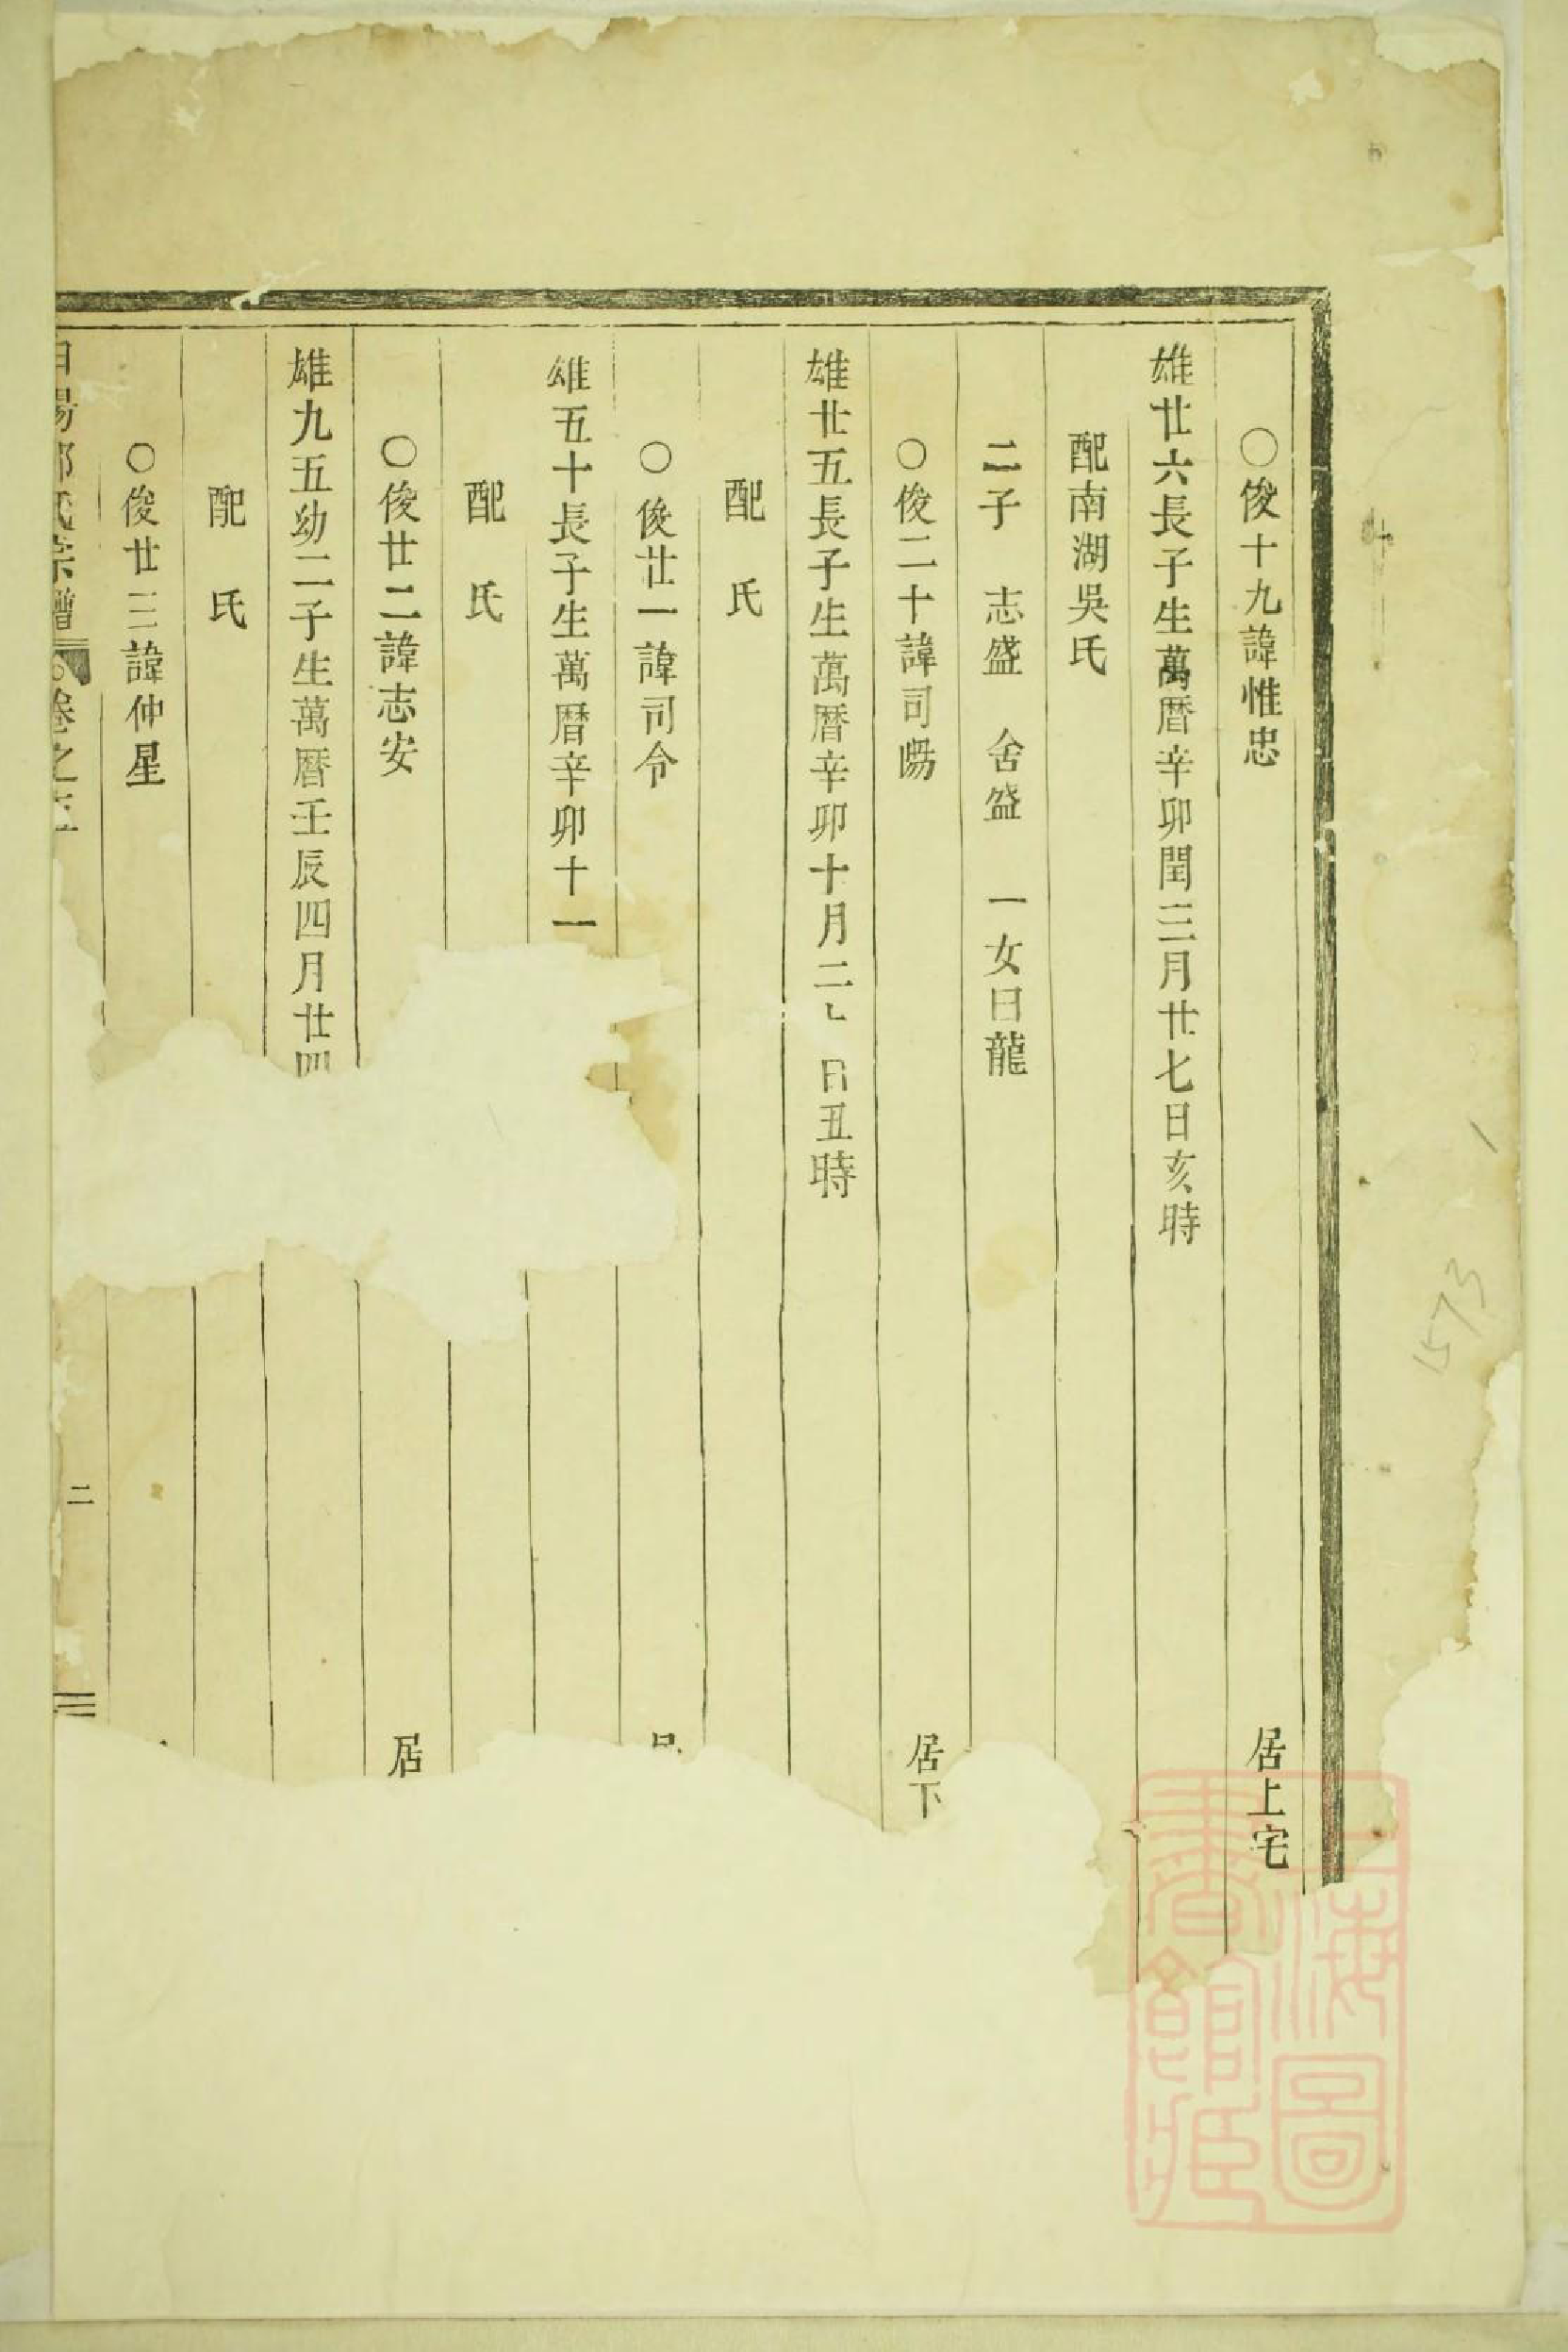 ○俊十九諱惟忠 居上宅
雄廿六長子生萬曆辛卯閏三月廿七日亥時
配南湖吳氏
二子 志盛 舍盛 一女曰龍
○俊二十諱司暘 居下
雄廿五長子生萬曆辛卯十月二 日丑時
配 氏
○俊廿一諱司令
雄五十長子生萬曆辛卯十一
配 氏
○俊廿二諱志安 居
雄九五幼二子生萬曆壬辰四月廿四
配 氏
○俊廿三諱仲星
氏宗譜 卷之 二
上海圖書館藏
1573